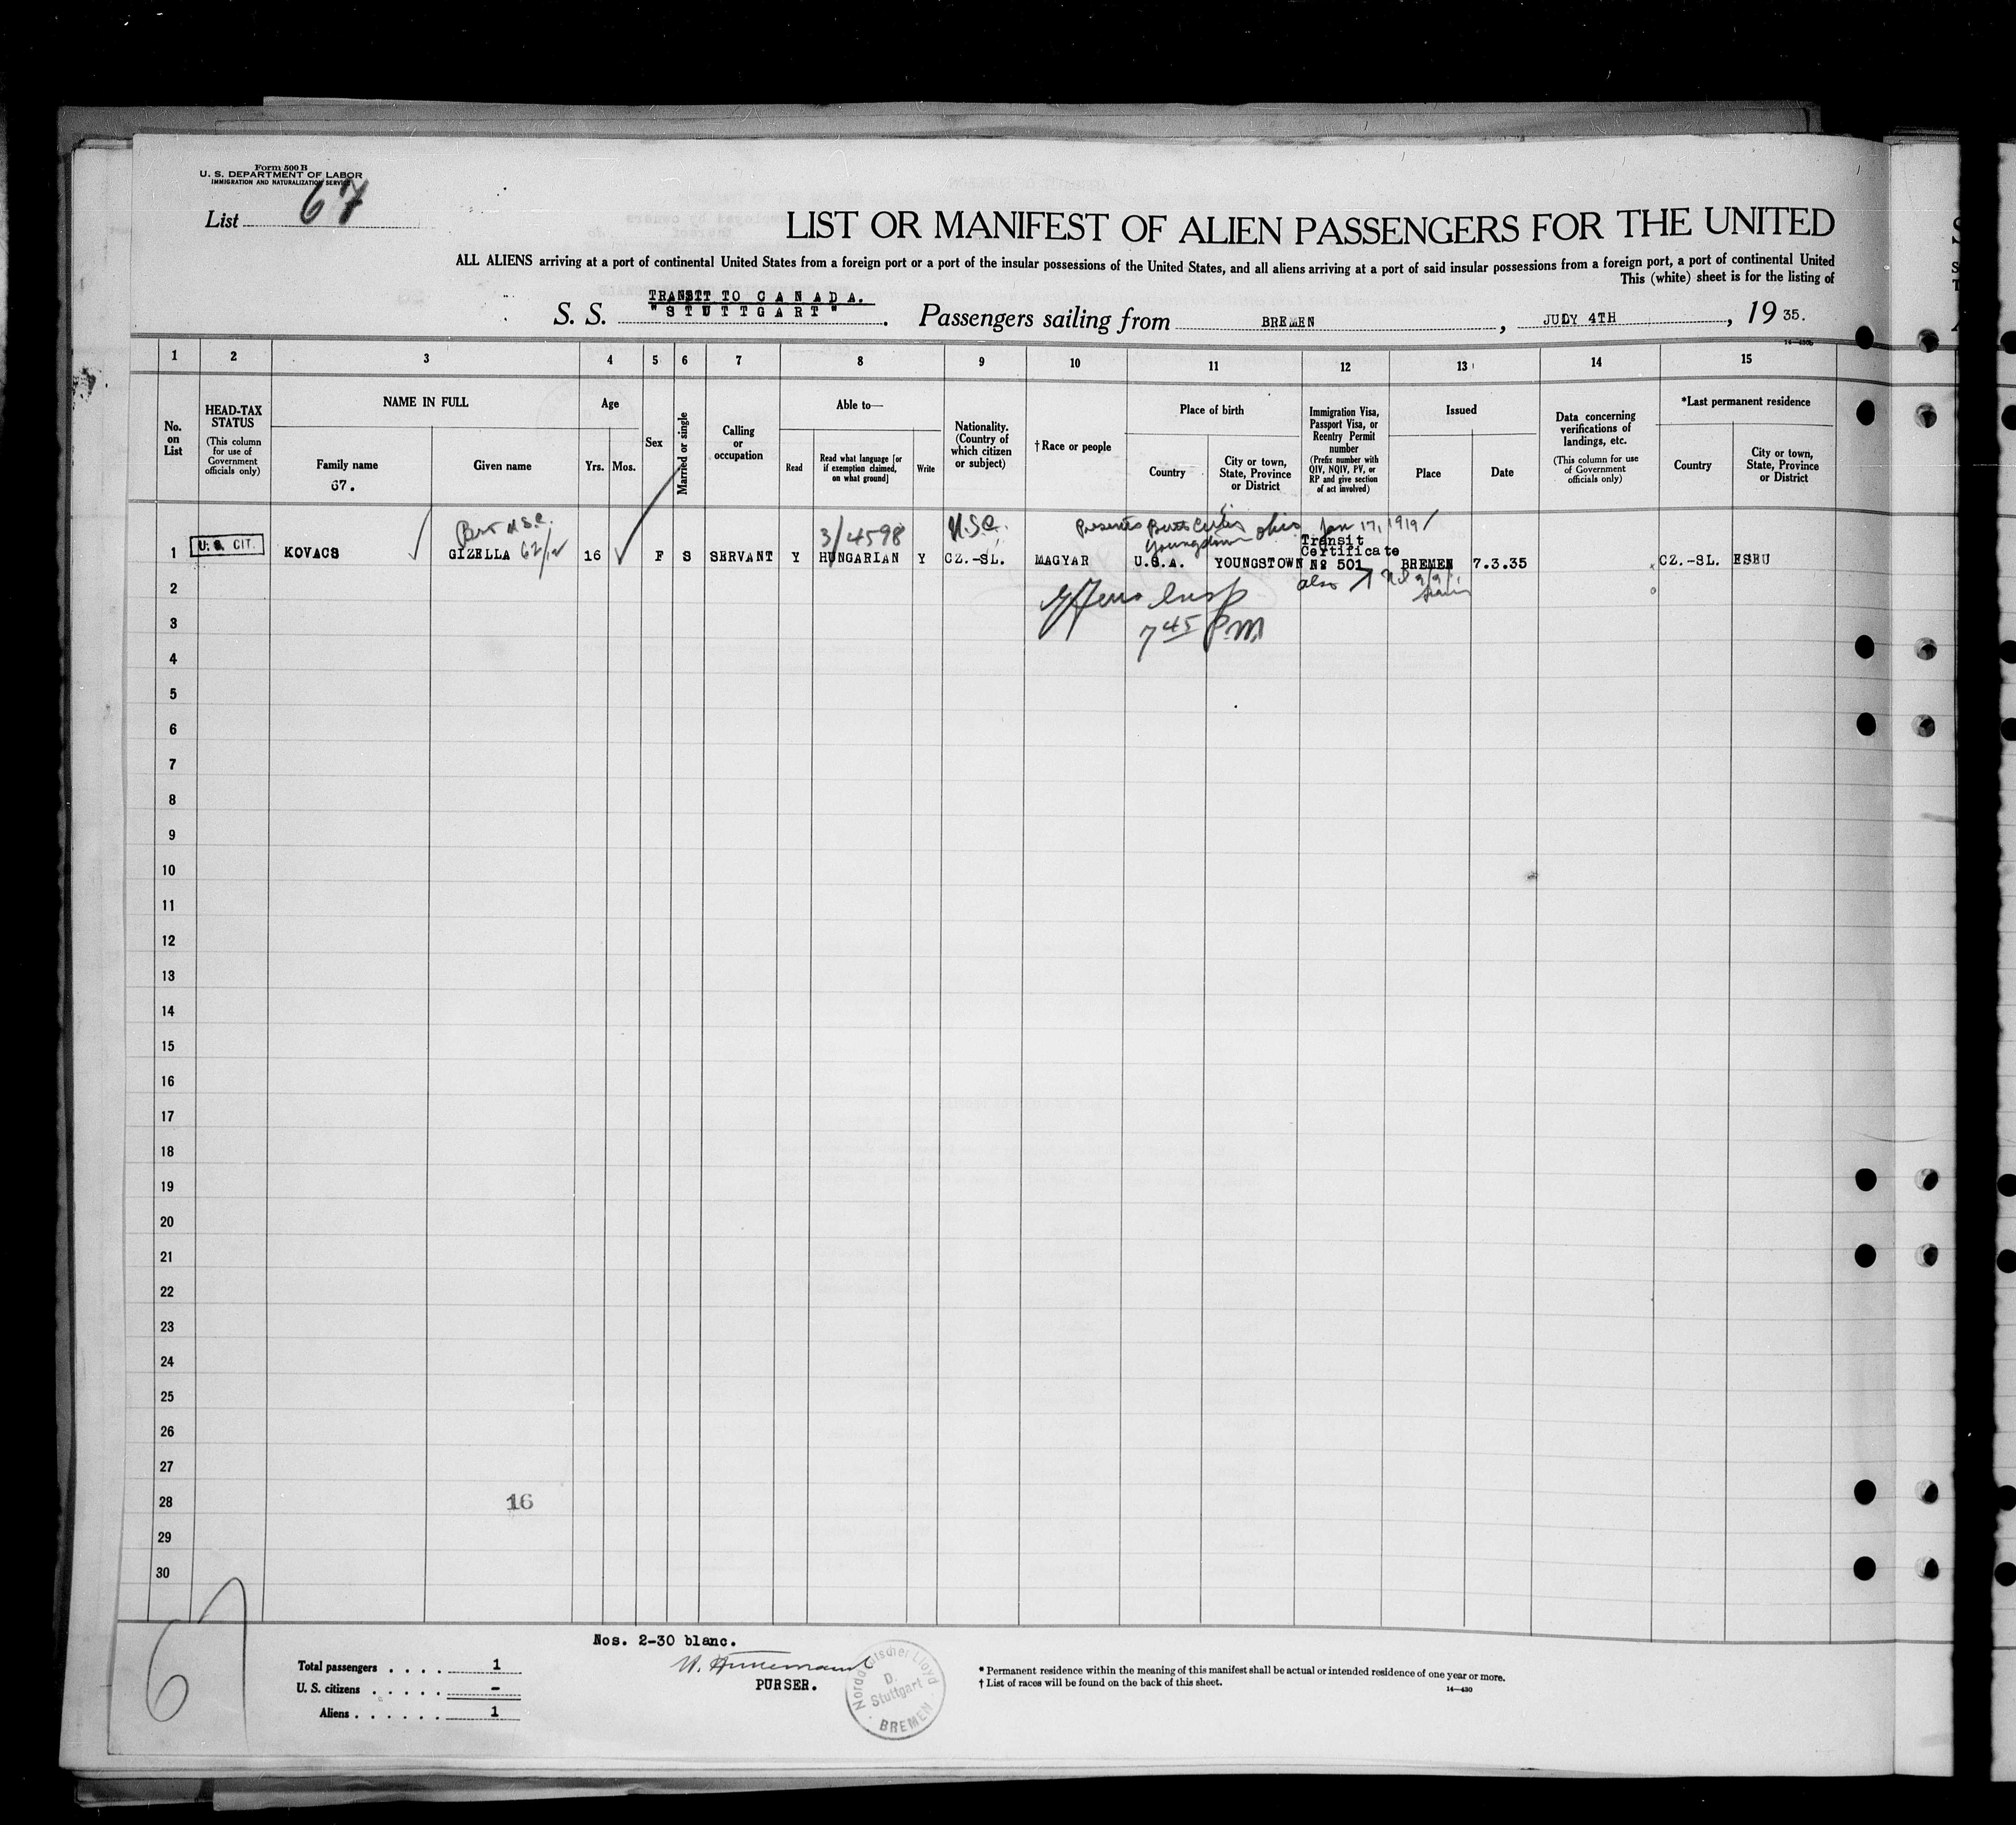 Form 500 B
U. S. DEPARTMENT OF LABOR
IMMIGRATION AND NATURALIZATION SERVICE
List 67
LIST OR MANIFEST OF ALIEN PASSENGERS FOR THE UNITED
ALL ALIENS arriving at a port of continental United States from a foreign port or a port of the insular possessions of the United States, and all aliens arriving at a port of said insular possessions from a foreign port, a port of continental United
This (white) sheet is for the listing of
TRANSIT TO CANADA.
S. S. "STUTTGART". Passengers sailing from BREMEN, JUDY 4TH, 19 35.
1 2 3 4 5 6 7 8 9 10 11 12 13 14 15
No. on List
HEAD-TAX STATUS
(This column for use of Government officials only)
NAME IN FULL
Family name
67.
Given name
Age
Yrs. Mos.
Sex
Married or single
Calling or occupation
Able to—
Read
Read what language [or if exemption claimed, on what ground]
Write
Nationality. (Country of which citizen or subject)
† Race or people
Place of birth
Country
City or town, State, Province or District
Immigration Visa, Passport Visa, or Reentry Permit number
(Prefix number with QIV, NQIV, PV, or RP and give section of act involved)
Issued
Place
Date
Data concerning verifications of landings, etc.
(This column for use of Government officials only)
*Last permanent residence
Country
City or town, State, Province or District
3/4598 U.S.C. Presents Ohio Jan 17, 1919
Youngstown Transit Certificate
1 U. S. CIT. KOVACS GIZELLA 16 F S SERVANT Y HUNGARIAN Y CZ.-SL. MAGYAR U.S.A. YOUNGSTOWN No 501 BREMEN 7.3.35 CZ.-SL. ESEU
also
2
Insp
3
7 45 P.M.
4
5
6
7
8
9
10
11
12
13
14
15
16
17
18
19
20
21
22
23
24
25
26
27
28 16
29
30
67
Nos. 2-30 blanc.
Total passengers . . . . 1
U. S. citizens . . . . . –
Aliens . . . . . . 1
PURSER.
Norddeutscher Lloyd
D. Stuttgart
BREMEN
* Permanent residence within the meaning of this manifest shall be actual or intended residence of one year or more.
† List of races will be found on the back of this sheet.
14—430